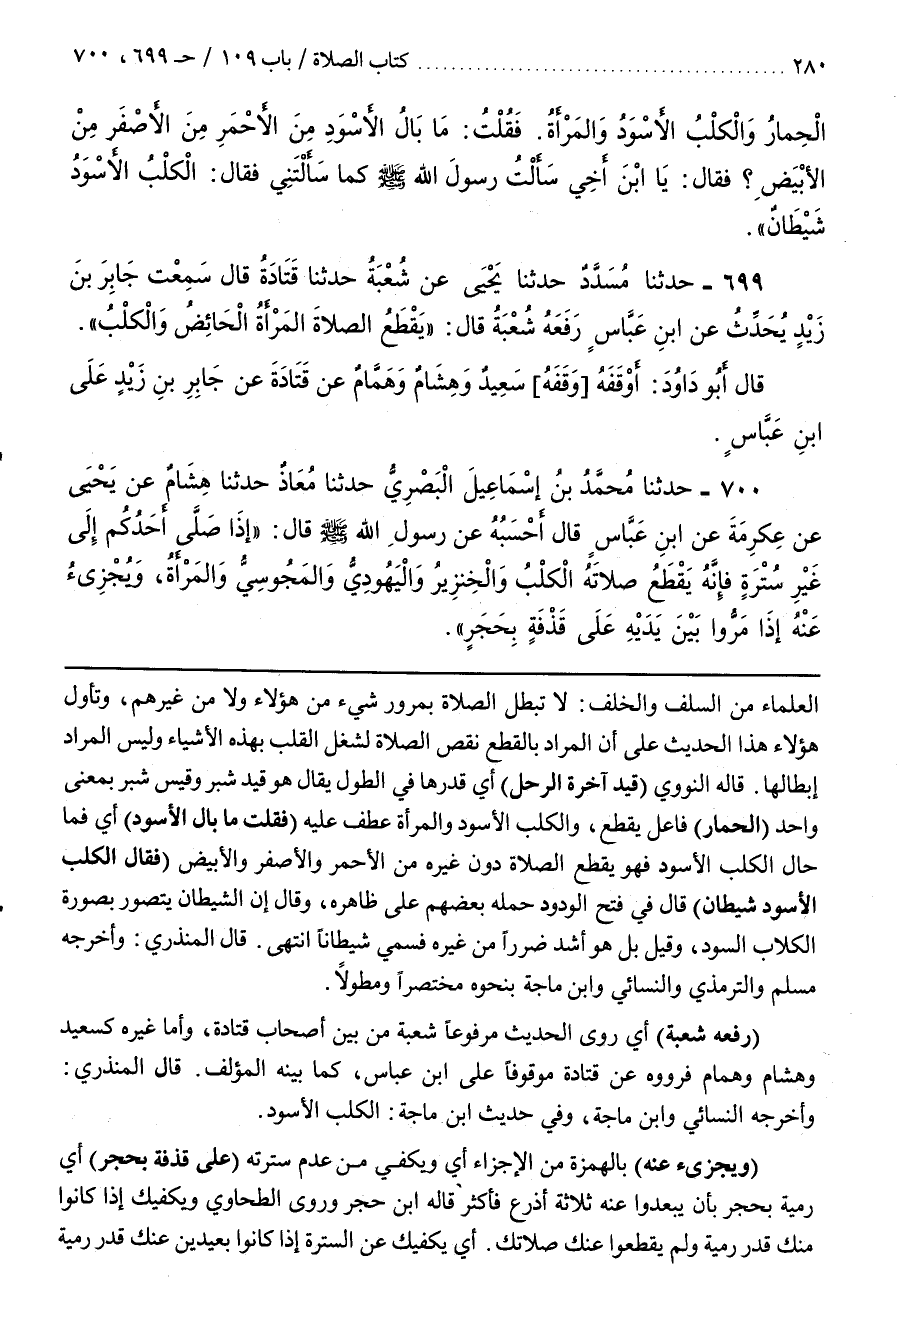 ٢٨٠ ........ كتاب الصلاة / باب ١٠٩ / حـ ٦٩٩ ، ٧٠٠
الْحِمارُ وَالْكلْبُ الأَسْوَدُ وَالمَرْأَةُ. فَقُلْتُ: مَا بَالُ الأَسْوَدِ مِنَ الأَحْمَرِ مِنَ الأَصْفَرِ مِنْ
الأَبْيَضِ؟ فقال: يَا ابْنَ أَخِي سَأَلْتُ رسولَ الله ﷺ كما سَأَلْتَنِي فقال: الْكَلْبُ الأَسْوَدُ
شَيْطَانٌ».
٦٩٩ ـ حدثنا مُسَدَّدٌ حدثنا يَحْيَى عن شُعْبَةُ حدثنا قَتَادَةُ قال سَمِعْت جَابِرَ بنَ
زَيْدٍ يُحَدِّثُ عن ابنِ عَبَّاسٍ رَفَعَهُ شُعْبَةُ قال: «يَقْطَعُ الصلاةَ المَرْأَةُ الْحَائِضُ وَالْكلْبُ».
قال أَبُو دَاوُدَ: أَوْقَفَهُ [وَقَفَهُ] سَعِيدٌ وَهِشَامٌ وَهَمَّامٌ عن قَتَادَةَ عن جَابِرِ بنِ زَيْدٍ عَلَى
ابنِ عَبَّاسٍ.
٧٠٠ ـ حدثنا مُحمَّدُ بنُ إِسْمَاعِيلَ الْبَصْرِيُّ حدثنا مُعَاذٌ حدثنا هِشَامٌ عن يَحْيَى
عن عِكرِمَةَ عن ابنِ عَبَّاسٍ قال أَحْسَبُهُ عن رسولِ الله ﷺ قال: «إِذَا صَلَّى أَحَدُكُم إِلَى
غَيْرِ سُتْرَةٍ فإِنَّهُ يَقْطَعُ صلاتَهُ الْكَلْبُ وَالْخِنزِيرُ وَالْيَهُودِيُّ وَالمَجُوسِيُّ وَالمَرْأَةُ، وَيُجْزِىءُ
عَنْهُ إِذَا مَرُّوا بَيْنَ يَدَيْهِ عَلَى قَذْفَةٍ بِحَجَرٍ».
العلماء من السلف والخلف: لا تبطل الصلاة بمرور شيء من هؤلاء ولا من غيرهم، وتأول
هؤلاء هذا الحديث على أن المراد بالقطع نقص الصلاة لشغل القلب بهذه الأشياء وليس المراد
إبطالها. قاله النووي (قيد آخرة الرحل) أي قدرها في الطول يقال هو قيد شبر وقيس شبر بمعنى
واحد (الحمار) فاعل يقطع، والكلب الأسود والمرأة عطف عليه (فقلت ما بال الأسود) أي فما
حال الكلب الأسود فهو يقطع الصلاة دون غيره من الأحمر والأصفر والأبيض (فقال الكلب
الأسود شيطان) قال في فتح الودود حمله بعضهم على ظاهره، وقال إن الشيطان يتصور بصورة
الكلاب السود، وقيل بل هو أشد ضرراً من غيره فسمي شيطاناً انتهى. قال المنذري: وأخرجه
مسلم والترمذي والنسائي وابن ماجة بنحوه مختصراً ومطولاً.
(رفعه شعبة) أي روى الحديث مرفوعاً شعبة من بين أصحاب قتادة، وأما غيره كسعيد
وهشام وهمام فرووه عن قتادة موقوفاً على ابن عباس، كما بينه المؤلف. قال المنذري:
وأخرجه النسائي وابن ماجة، وفي حديث ابن ماجة: الكلب الأسود.
(ويجزىء عنه) بالهمزة من الإجزاء أي ويكفي مـن عدم سترته (على قذفة بحجر) أي
رمية بحجر بأن يبعدوا عنه ثلاثة أذرع فأكثر قاله ابن حجر وروى الطحاوي ويكفيك إذا كانوا
منك قدر رمية ولم يقطعوا عنك صلاتك. أي يكفيك عن السترة إذا كانوا بعيدين عنك قدر رمية